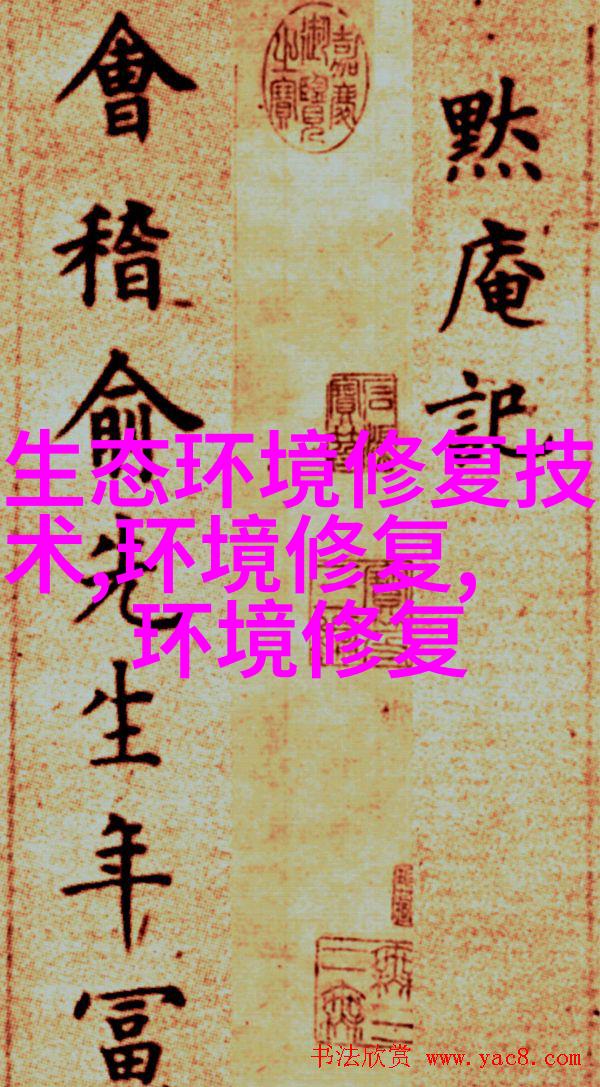 默庵記
嘉慶御覽之寶
石渠寶笈
會稽俞先生年冨
生态环境修复技
术,环境修复,
环境修复
书法欣赏 www.yac8.com